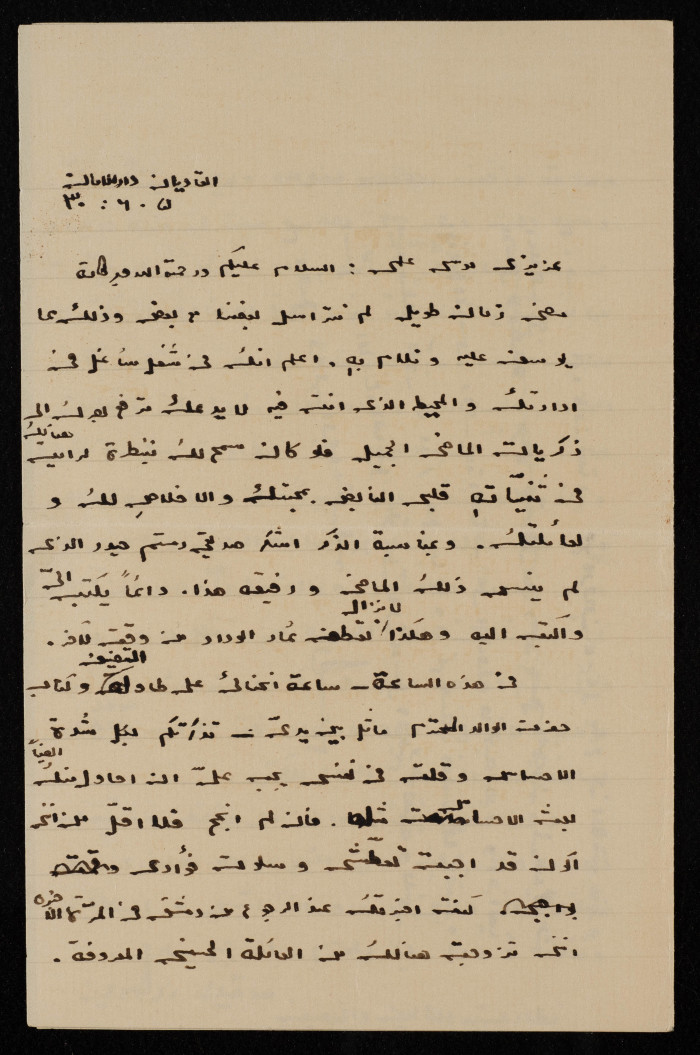 القاديان دارالامان
٣٠ . ٦ .
عزيزي موسى علمي : السلام عليكم ورحمة الله وبركاته
مضى زمان طويل لم نتراسل بعضنا مع بعض وذلك مما
يؤسف عليه ونلام به . اعلم انك في شغل شاغل في
ادارتك والمحيط الذي انت فيه لا يدعك ترجع بصرك الى
ذكريات الماضي الجميل فلو كان سمح لك بنظرة لرأيت هنالك
في ثنيّات قلبي النابض بمحبتك والاخلاص لك و
لعائلتك . وبمناسبة الذكر اشكر صديقي رستم حيدر الذي
لم ينسى ذلك الماضي ورفيقه هذا . دائماً يكتب اليّ
واكتب اليه وهكذا لانزال نقطف ثمار الوداد من وقت لآخر .
في هذه الساعة - ساعة انحنائي على طاولة التصنيف وكتاب
حضرت الوالد المحترم ماثل بين يديّ - تذكرتكم بكل شدة
الاحساس وقلت في نفسي يجب عليّ ان احاول منك ايضاً
لبعث الاحساسات مثلها . فان لم انجح فلا اقلّ من انني
اكون قد اجبت تعطّشي وسلوت فؤادي
كنت اخبرتك عند الرجوع من دمشق في المرة الاخيرة
انني تزوجت هنالك من العائلة الحسيني المعروفة .